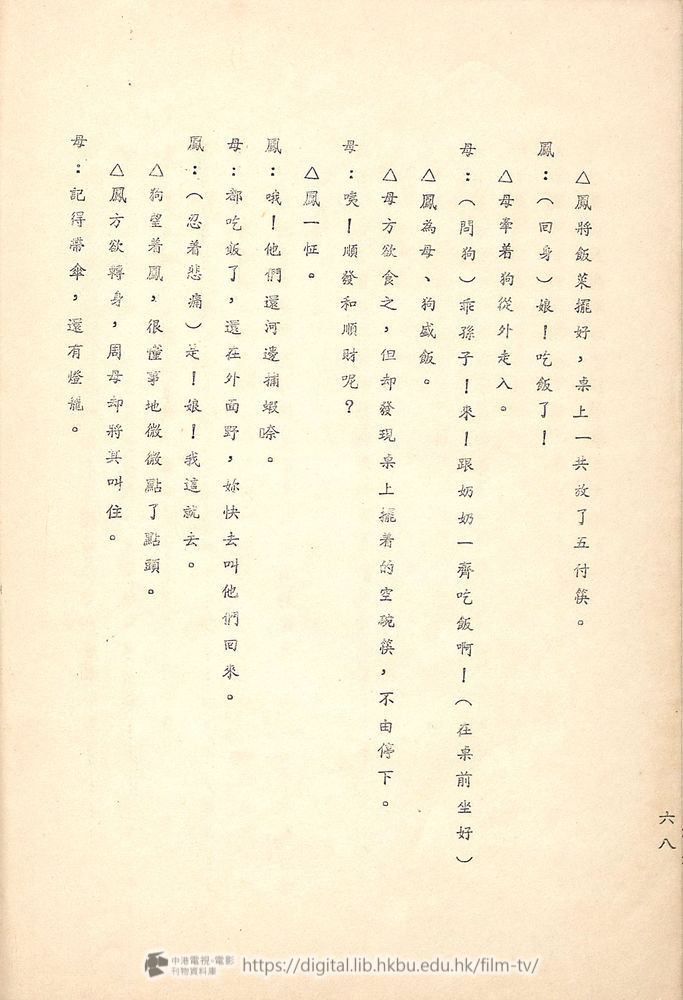 △鳳將飯菜擺好，桌上一共放了五付筷。
鳳：（回身）娘！吃飯了！
△母牽着狗從外走入。
母：（問狗）乖孫子！來！跟奶奶一齊吃飯啊！（在桌前坐好）
△鳳為母、狗盛飯。
△母方欲食之，但却發現桌上擺着的空碗筷，不由停下。
母：咦！順發和順財呢？
△鳳一怔。
鳳：哦！他們還河邊捕蝦嗱。
母：都吃飯了，還在外面野，妳快去叫他們回來。
鳳：（忍着悲痛）是！娘！我這就去。
△狗望着鳳，很懂事地微微點了點頭。
△鳳方欲轉身，周母却將其叫住。
母：記得帶傘，還有燈籠。
六八
中港電視·電影
刊物資料庫
https://digital.lib.hkbu.edu.hk/film-tv/